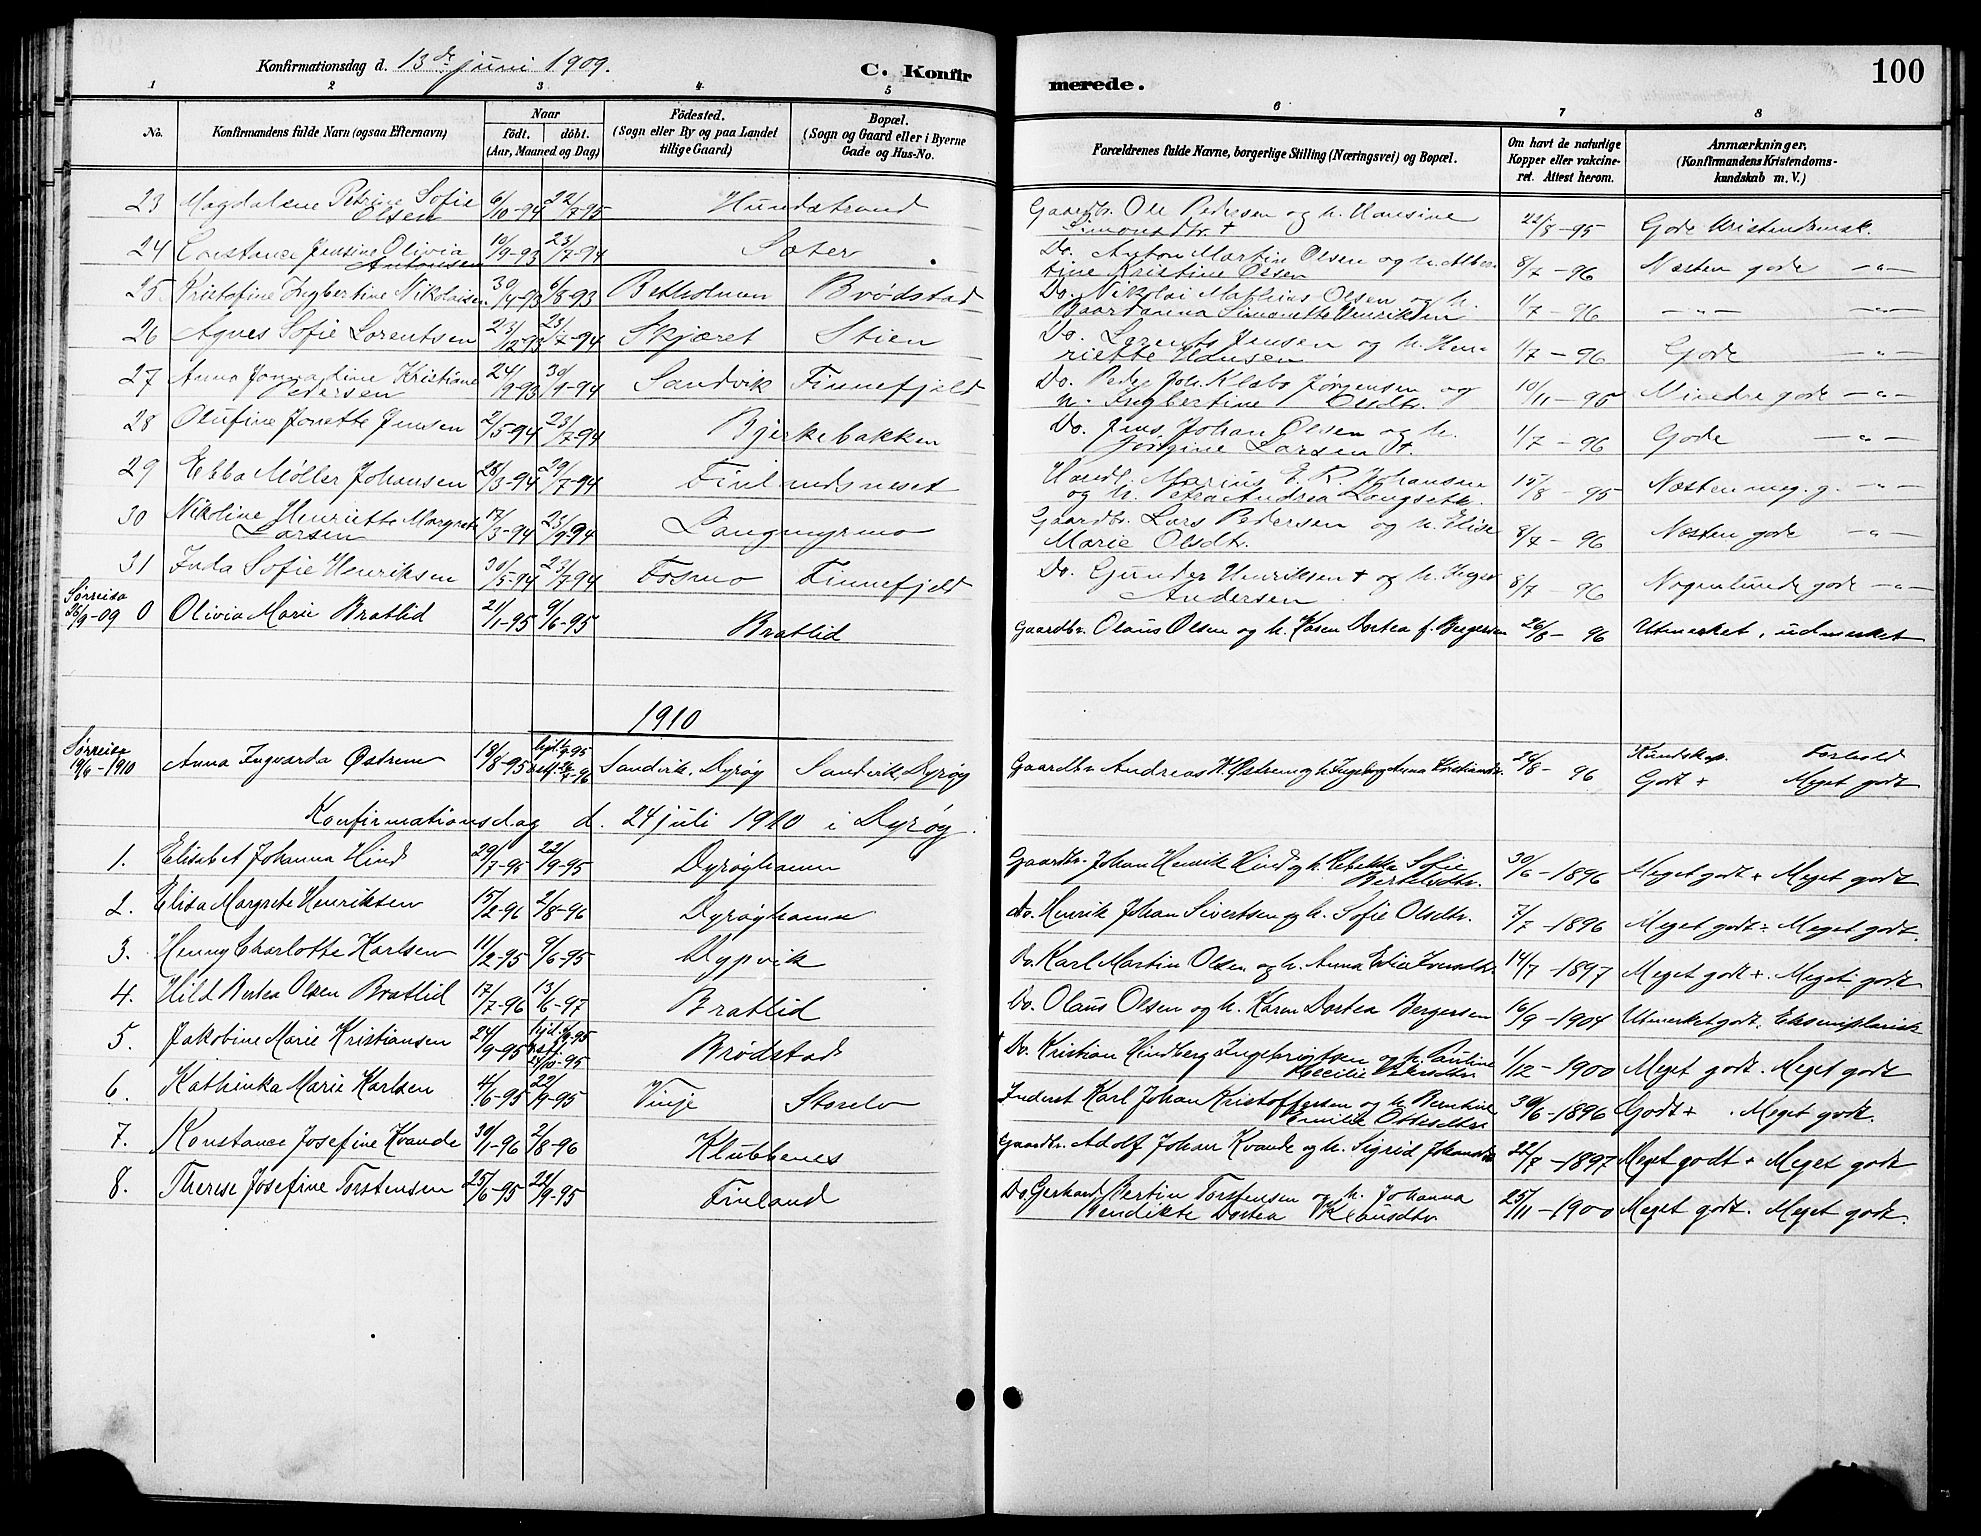 Konfirmationsdag d. 13de juni 1909. C. Konfir
merede. 100
1 2 3 4 5 6 7 8
No. Konfirmandens fulde Navn (ogsaa Efternavn) Naar födt. döbt. (Aar, Maaned og Dag) Födested. (Sogn eller By og paa Landet tillige Gaard) Bopæl. (Sogn og Gaard eller i Byerne Gade og Hus-No. Forældrenes fulde Navne, borgerlige Stilling (Næringsvei) og Bopæl. Om havt de naturlige Kopper eller vakcineret. Attest herom. Anmærkninger. (Konfirmandens Kristendomskundskab m. V.)
23 Magdalene Petrine Sofie Olsen 6/10-94 22/7-95 Hundstrand Gaardbr. Ole Pedersen og h. Hansine Simonsdtr. + 22/8-95 Gode Kristendomsk.
24 Constance Jensine Olivia Antonsen 10/9-93 23/7-94 Sæter Do. Anton Martin Olsen og h. Albertine Kristine Olsen 8/7-96 Næsten gode -"-
25 Kristofine Ingbertine Nikolaisen 30/4-93 6/8-93 Betholmen Brödstad Do. Nikolai Mathias Olsen og h. Simonette Henriksen 1/7-96 -"- -"-
26 Agnes Sofie Lorentsen 23/12-93 23/7-94 Skjæret Stien Do. Lorents Jensen og h. Henriette Hansen 1/7-96 Gode -"-
27 Anna Kristine Pedersen 24/9-93 30/9-94 Sandvik Finnefjeld Do. Peder Joh. Klæbo Jørgensen og h. Ingbertine Olsdtr. 10/11-95 Mindre gode -"-
28 Olufine Jonette Jensen 2/5-94 23/7-94 Bjerkebakken Do. Jens Johan Olsen og h. Jörgine Larsen 1/7-96 Gode -"-
29 Ebba Møller Johansen 28/3-94 29/7-94 Finlandsneset Handl. Marius E. R. Johansen og h. Petra Andrea Langseth. 15/8-95 Næsten meg. g. -"-
30 Nikoline Henriette Margrete Larsen 17/3-94 23/9-94 Langmyrmo Gaardbr. Lars Pedersen og h. Elise Marie Olsdtr. 8/7-96 Næsten gode -"-
31 Inda Sofie Henriksen 30/5-94 23/7-94 Fosmo Finnefjeld Do. Gunder Henriksen + og h. Inger Andersen 8/7-96 Nogenlunde gode -"-
Sørreisa 26/9-09 0 Olivia Marie Bratlid 21/1-95 9/6-95 Bratlid Gaardbr. Olaus Olsen og h. Karen Dortea f. Bergersen 26/8-96 Utmerket, udmerket
1910
Sørreisa 19/6-1910 Anna Ingvarda Østrem 18/8-95 Sandvik, Dyrøy Sandvik, Dyrøy Gaardbr Andreas H. Østrem og h. Ingeborg Anna Kristiansdr. 26/8-96 Kundskap. Godt + Forhold Meget godt
Konfirmationsdag d. 24 juli 1910 i Dyrøy.
1. Elisabet Johanna Hind 29/7-95 22/9-95 Dyrøyhamn Gaardbr. Johan Henrik Hind og h. Rebekka Sofie Bertelsdtr. 30/6-1896 Meget godt + Meget godt
2. Elisa Margrete Henriksen 15/2-96 2/8-96 Dyrøyhamn Do. Henrik Johan Sivertsen og h. Sofie Olsdtr. 7/7-1896 Meget godt Meget godt.
3. Henny Charlotte Karlsen 11/2-95 9/6-95 Dypvik Do. Karl Martin Olsen og h. Anna 14/7-1897 Meget godt +. Meget godt
4. Hild Bertea Olsen Bratlid 17/7-96 13/6-97 Bratlid Do. Olaus Olsen og h. Karen Dortea Bergersen 16/9-1904 Utmerket godt. Eksemplarisk
5. Jakobine Marie Kristiansen 24/9-95 Brødstad Do. Kristian Hindberg Ingebrigtsen og h. Pauline Cecilie 1/12-1900 Meget godt. Meget godt
6. Kathinka Marie Karlsen 4/6-95 22/9-95 Vinje Storelv Inderst Karl Johan Kristoffersen og h. Berntine Emilie Ottesdtr 30/6-1896 Godt + . Meget godt.
7. Konstance Josefine Kvande 30/1-96 2/8-96 Klubbenes Gaardbr. Adolf Johan Kvande og h. Sigrid Johansdtr 22/7-1897 Meget godt + Meget godt
8. Therese Josefine Torstensen 25/6-95 22/9-95 Finland Do. Gerhard Bertin Torstensen og h. Johanna Bendikte Dortea Klausdtr 25/11-1900 Meget godt. Meget godt.